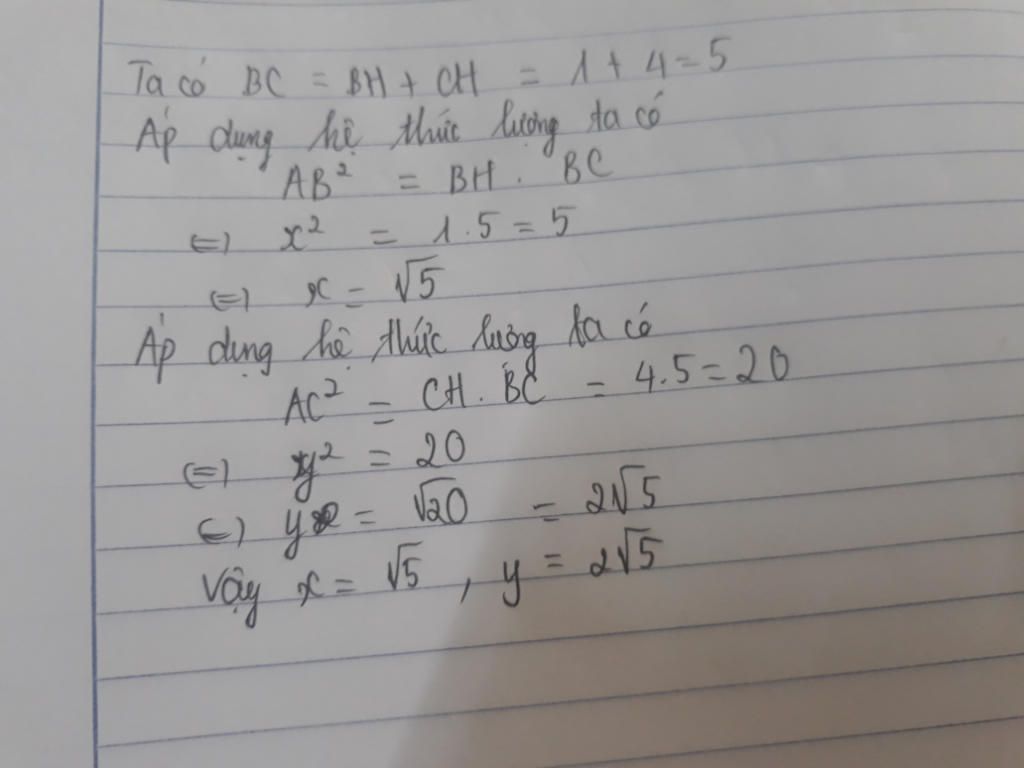 Ta có BC = BH + CH = 1 + 4 = 5
Áp dụng hệ thức lượng ta có
AB² = BH . BC
⇔ x² = 1.5 = 5
⇔ x = √5
Áp dụng hệ thức lượng ta có
AC² = CH . BC = 4.5 = 20
⇔ y² = 20
⇔ y = √20 = 2√5
Vậy x = √5 , y = 2√5